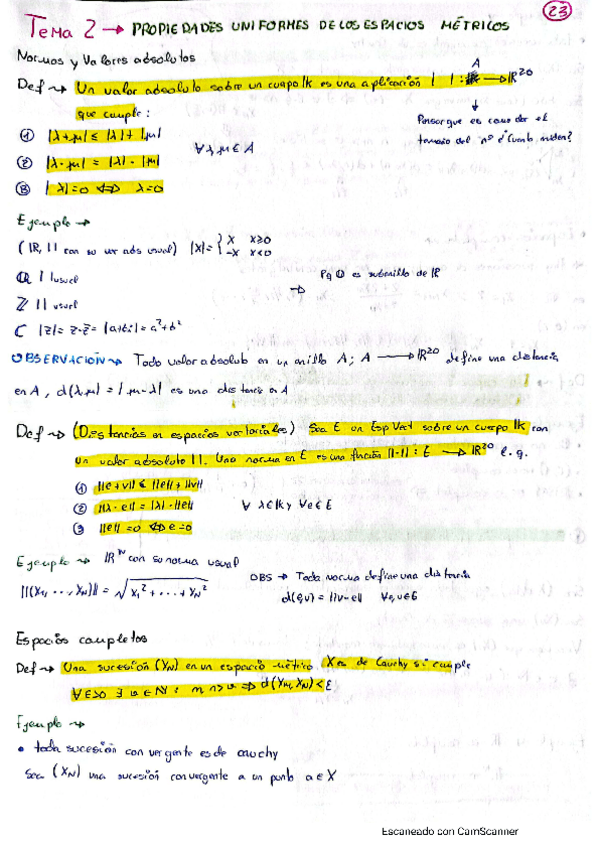 23
Tema 2 → PROPIEDADES UNIFORMES DE LOS ESPACIOS MÉTRICOS
Normas y Valores absolutos
Def ⇝ Un valor absoluto sobre un cuerpo lk es una aplicación | | : A → ℝ≥0
que cumple:
① |λ+μ| ≤ |λ|+|μ|
② |λ·μ| = |λ|·|μ| ∀λ,μ ∈ A
③ |λ|=0 ⟺ λ=0
↓
tamaño del nº
Ejemplo →
(ℝ, | | con su usual) |x| = { x x≥0
-x x<0
ℚ | | usual
⇒ Pq ℚ es subanillo de ℝ
ℤ | | usual
ℂ |z| = z·z̄ = |a+bi| = a²+b²
OBSERVACIÓN ⇝ Todo valor absoluto en un anillo A; A → ℝ≥0 define una distancia
en A, d(λ,μ) = |μ-λ| es una distancia en A
Def ⇝ (Distancias en espacios vectoriales) Sea E un Esp Vect sobre un cuerpo lk con
un valor absoluto | |. Una norma en E es una función ||·|| : E → ℝ≥0 t.q.
① ||e+v|| ≤ ||e||+||v||
② ||λ·e|| = |λ|·||e|| ∀ λ∈lk y ∀e∈E
③ ||e||=0 ⟺ e=0
Ejemplo ⇝ ℝᴺ con su norma usual
||(x₁, ..., x_N)|| = √x₁²+...+x_N²
OBS → Toda norma define una distancia
d(e,v) = ||v-e|| ∀e,v∈E
Espacios completos
Def ⇝ Una sucesión (x_N) en un espacio métrico X es de Cauchy si cumple
∀ε>0 ∃ν∈ℕ : m,n>ν ⇒ d(x_m,x_N)<ε
Ejemplo ⇝
• toda sucesión convergente es de cauchy
Sea (x_N) una sucesión convergente a un punto a∈X
Escaneado con CamScanner